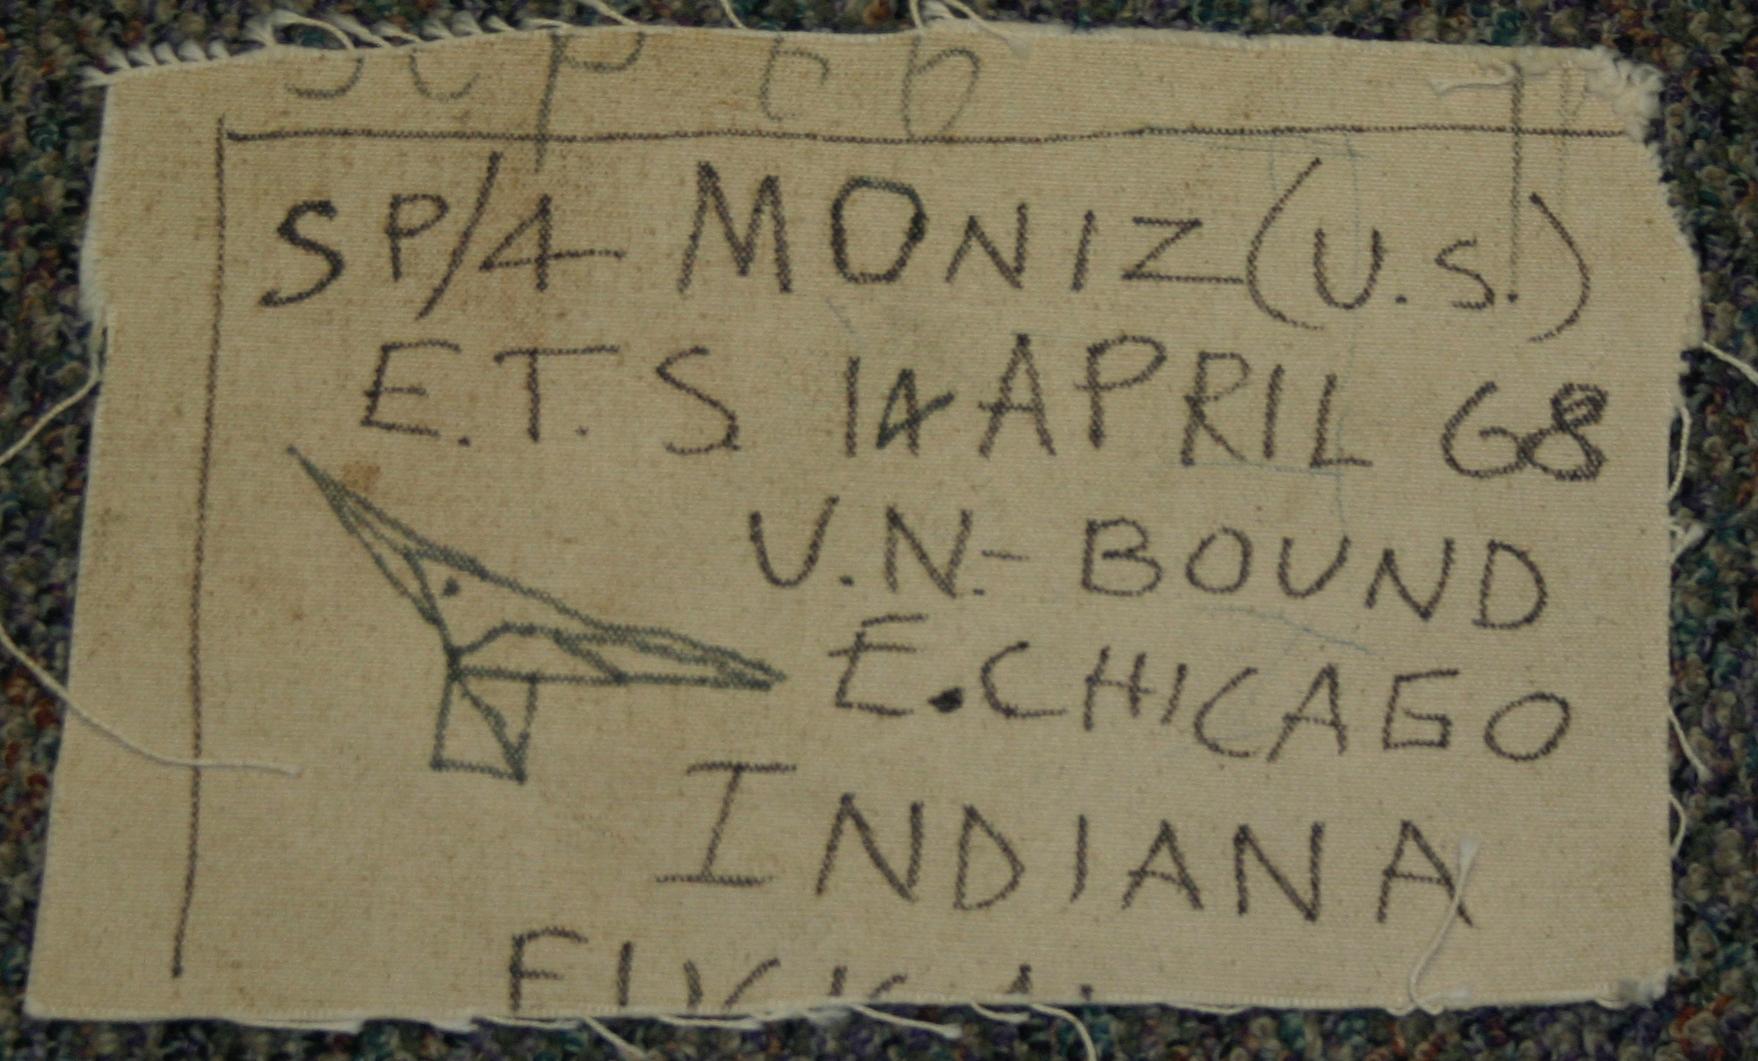 Sep 66
SP/4 MONIZ (U.S.)
E.T.S 14 APRIL 68
U.N.- BOUND
E. CHICAGO
INDIANA